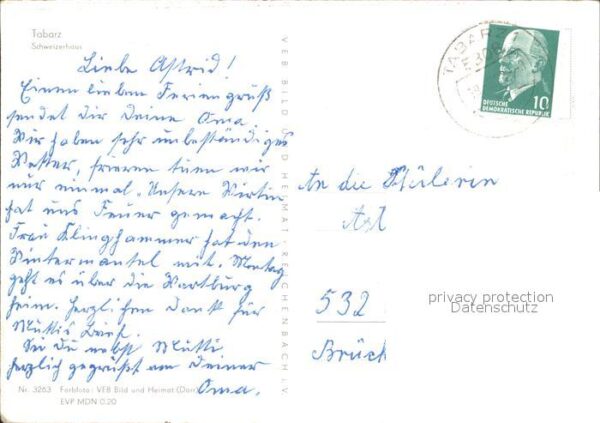 Tabarz
Schweizerhaus
Liebe Astrid!
Einen lieben Feriengruß
sendet dir Deine Oma.
Wir haben sehr unbeständiges
Wetter, frieren tuen wir
nur einmal. Unsere Wirtin
hat uns Feuer gemacht.
Frau Klinghammer hat den
Wintermantel mit. Montag
geht es über die Wartburg
heim. Herzlichen Dank für
Muttis Brief.
Sei Du nebst Mutti
herzlich gegrüßt von Deiner
Oma.
Nr. 3263 Farbfoto: VEB Bild und Heimat
EVP MDN 0.20
VEB BILD UND HEIMAT REICHENBACH i. V.
TABARZ
10
DEUTSCHE
DEMOKRATISCHE REPUBLIK
An die Schülerin
Ast
532
Brück
privacy protection
Datenschutz